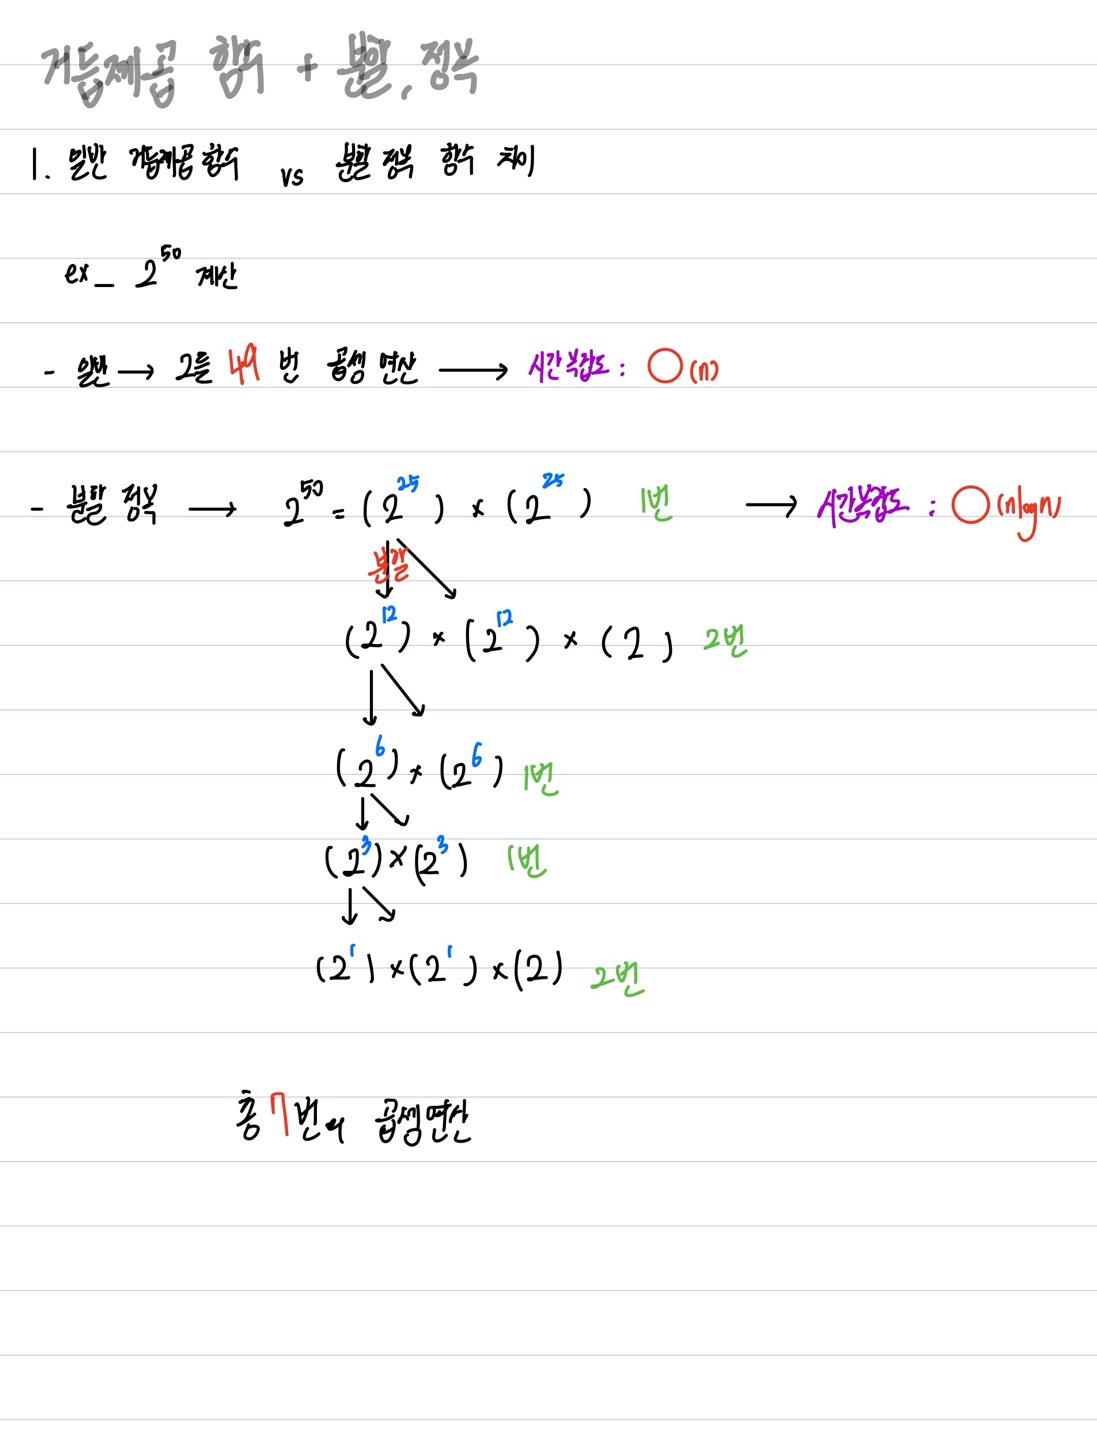 거듭제곱 함수 + 분할, 정복
1. 일반 거듭제곱 함수 vs 분할 정복 함수 차이
ex_ 2^50 계산
- 일반 → 2를 49 번 곱셈 연산 → 시간복잡도 : O(n)
- 분할 정복 → 2^50 = (2^25) × (2^25) 1번 → 시간복잡도 : O(nlogn)
분할
(2^12) × (2^12) × (2) 2번
(2^6) × (2^6) 1번
(2^3) × (2^3) 1번
(2^1) × (2^1) × (2) 2번
총 7번의 곱셈연산